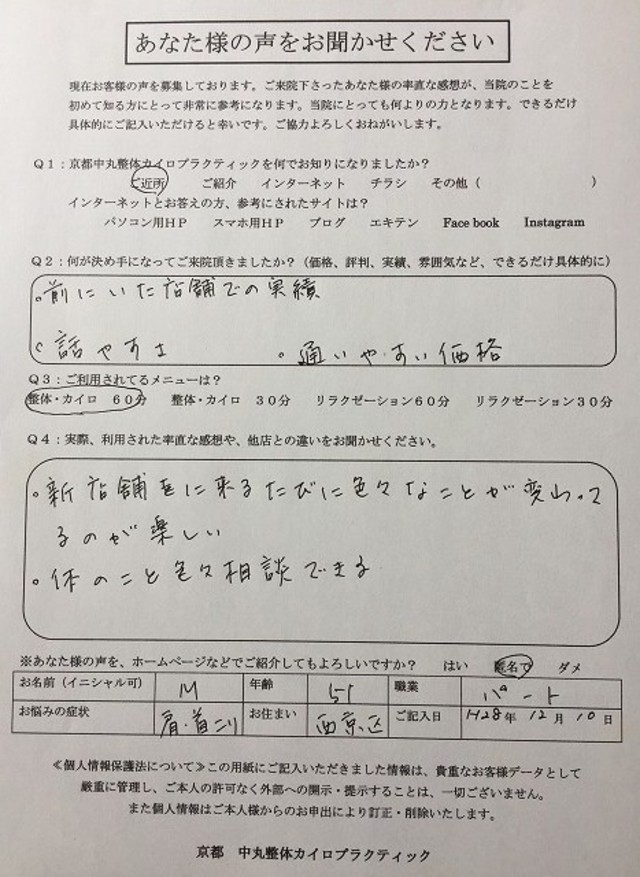 あなた様の声をお聞かせください
現在お客様の声を募集しております。ご来院下さったあなた様の率直な感想が、当院のことを
初めて知る方にとって非常に参考になります。当院にとっても何よりの力となります。できるだけ
具体的にご記入いただけると幸いです。ご協力よろしくおねがいします。
Q1：京都中丸整体カイロプラクティックを何でお知りになりましたか？
ご近所 ご紹介 インターネット チラシ その他（ ）
インターネットとお答えの方、参考にされたサイトは？
パソコン用HP スマホ用HP ブログ エキテン Face book Instagram
Q2：何が決め手になってご来院頂きましたか？（価格、評判、実績、雰囲気など、できるだけ具体的に）
。前にいた店舗での実績
。話やすさ 。通いやすい価格
Q3：ご利用されてるメニューは？
整体・カイロ 60分 整体・カイロ 30分 リラクゼーション60分 リラクゼーション30分
Q4：実際、利用された率直な感想や、他店との違いをお聞かせください。
。新店舗をに来るたびに色々なことが変わって
るのが楽しい
。体のこと色々相談できる
※あなた様の声を、ホームページなどでご紹介してもよろしいですか？ はい 匿名で ダメ
お名前（イニシャル可） M 年齢 51 職業 パート
お悩みの症状 肩・首こり お住まい 西京区 ご記入日 H28年 12月 10日
≪個人情報保護法について≫この用紙にご記入いただきました情報は、貴重なお客様データとして
厳重に管理し、ご本人の許可なく外部への開示・提示することは、一切ございません。
また個人情報はご本人様からのお申出により訂正・削除いたします。
京都 中丸整体カイロプラクティック